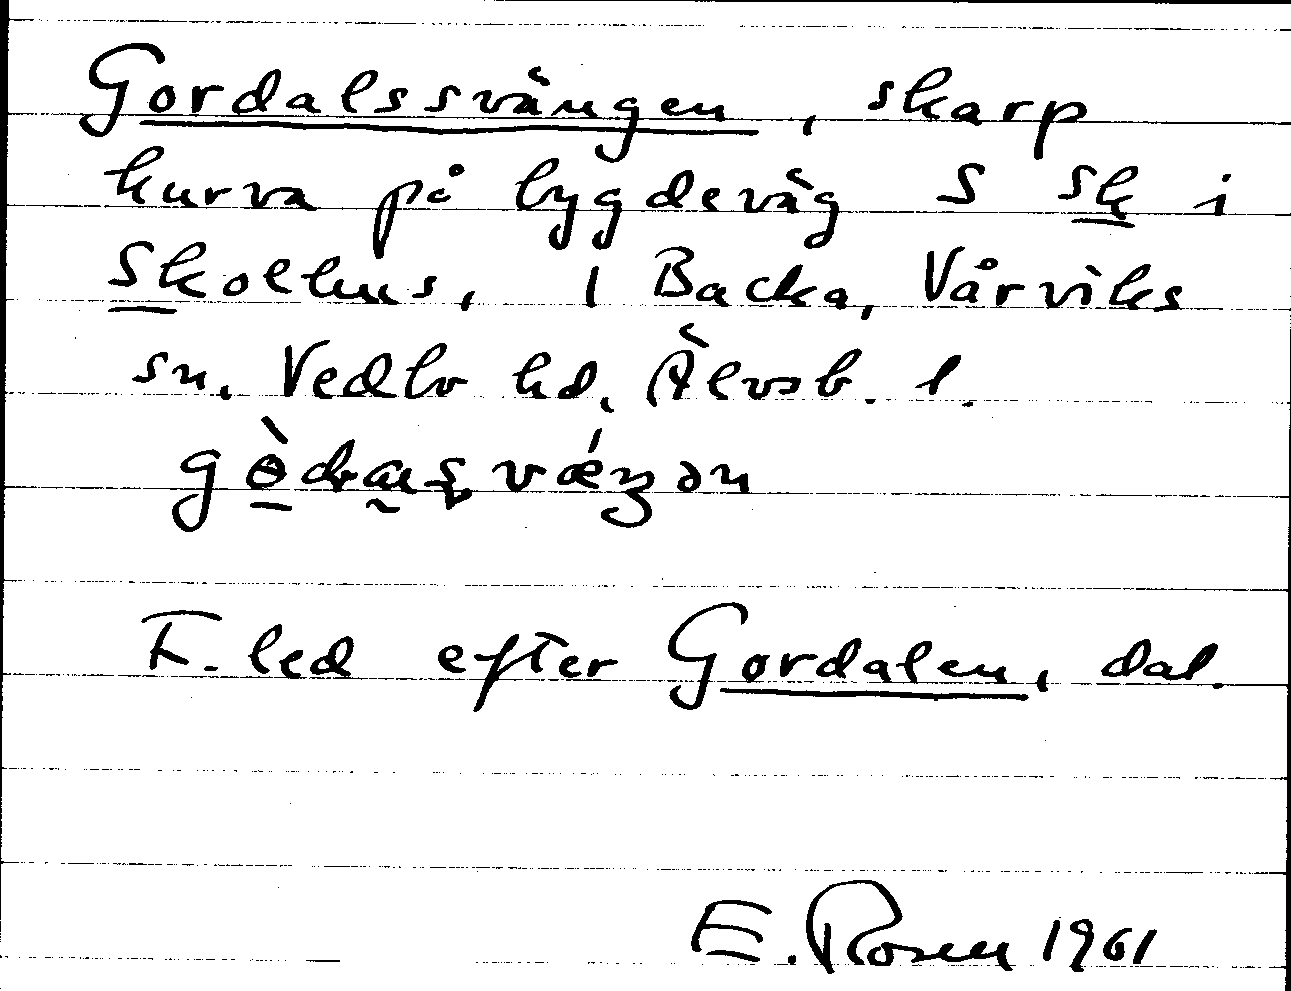 Gordalssvängen, skarp
kurva på bygdeväg S Sk i
Skolhus, 1 Backa, Vårviks
sn. Vedbo hd, Älvsb. l.
F. led efter Gordalen, dal.
E. Rosen 1961